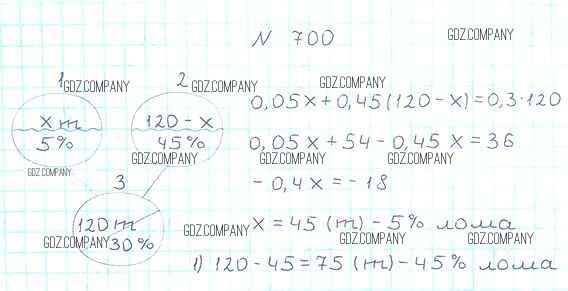 N 700
GDZ.COMPANY
1 GDZ.COMPANY
2 GDZ.COMPANY
GDZ.COMPANY
x т
5%
120 - x
45%
GDZ.COMPANY
0,05x + 0,45(120 - x) = 0,3·120
0,05x + 54 - 0,45x = 36
GDZ.COMPANY GDZ.COMPANY
GDZ.COMPANY
- 0,4x = - 18
3
120 т
30%
GDZ.COMPANY
GDZ.COMPANY
x = 45 (т) - 5% лома
GDZ.COMPANY GDZ.COMPANY
1) 120 - 45 = 75 (т) - 45% лома